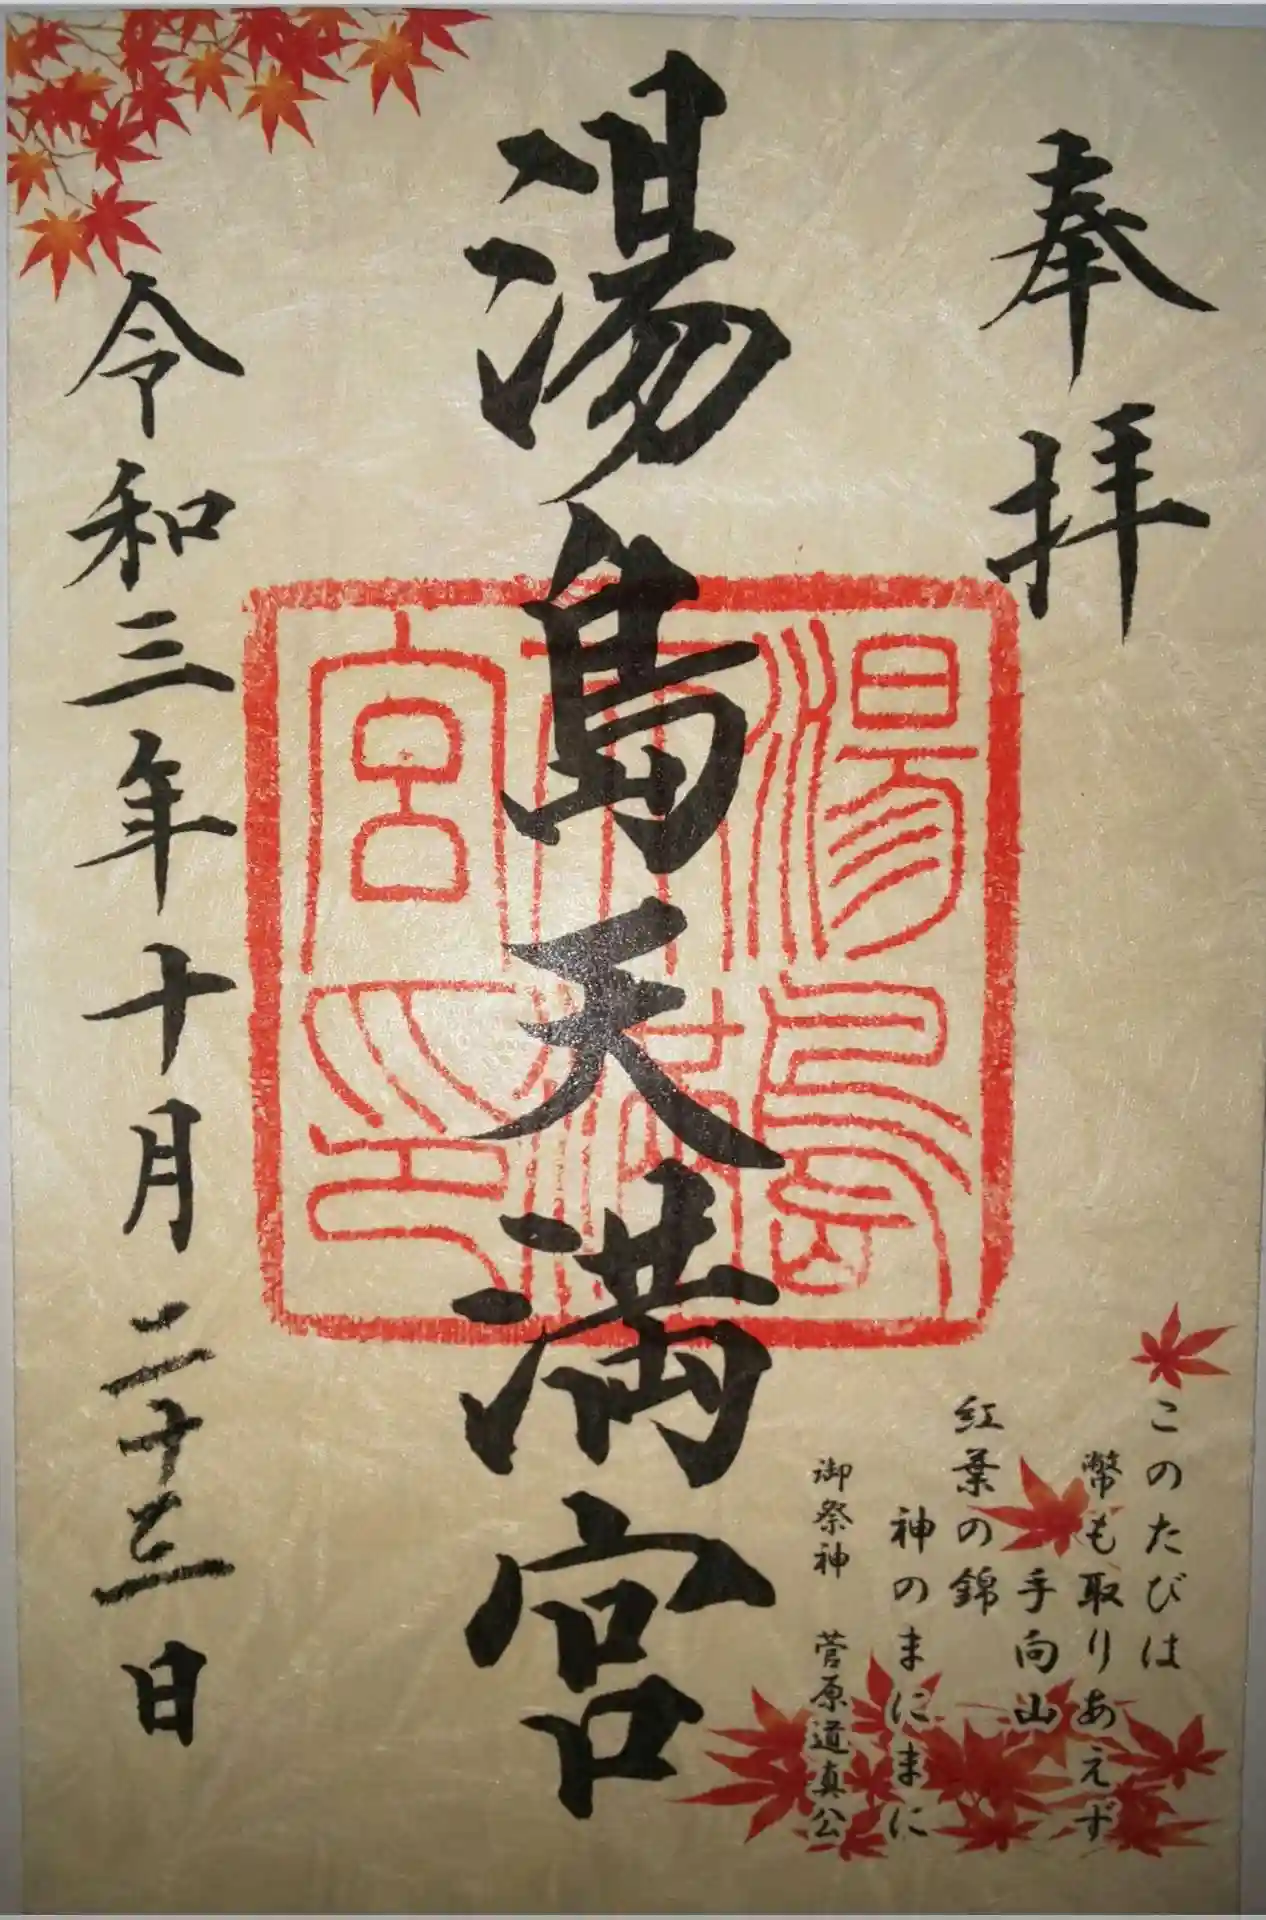 奉拝
湯島天満宮
湯島天満宮印
令和三年十月二十三日
このたびは
幣も取りあえず
手向山
紅葉の錦
神のまにまに
御祭神 菅原道真公